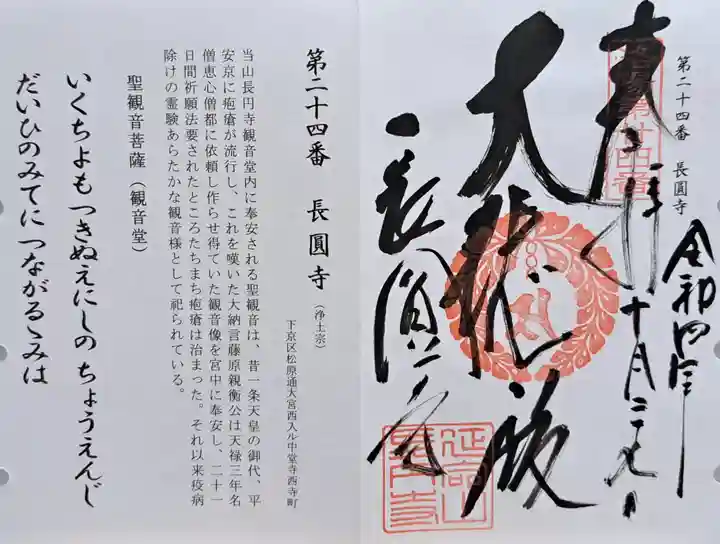 第二十四番 長圓寺
奉拝
令和四年
十月二十七日
大悲殿
長圓寺
第二十四番 長圓寺(浄土宗)
下京区松原通大宮西入ル中堂寺西寺町
当山長円寺観音堂内に奉安される聖観音は、昔一条天皇の御代、平
安京に疱瘡が流行し、これを嘆いた大納言藤原親衡公は天禄三年名
僧恵心僧都に依頼し作らせ得ていた観音像を宮中に奉安し、二十一
日間祈願法要されたところたちまち疱瘡は治まった。それ以来疫病
除けの霊験あらたかな観音様として祀られている。
聖観音菩薩(観音堂)
いくちよもつきぬえにしの ちょうえんじ
だいひのみてに つながるゝみは